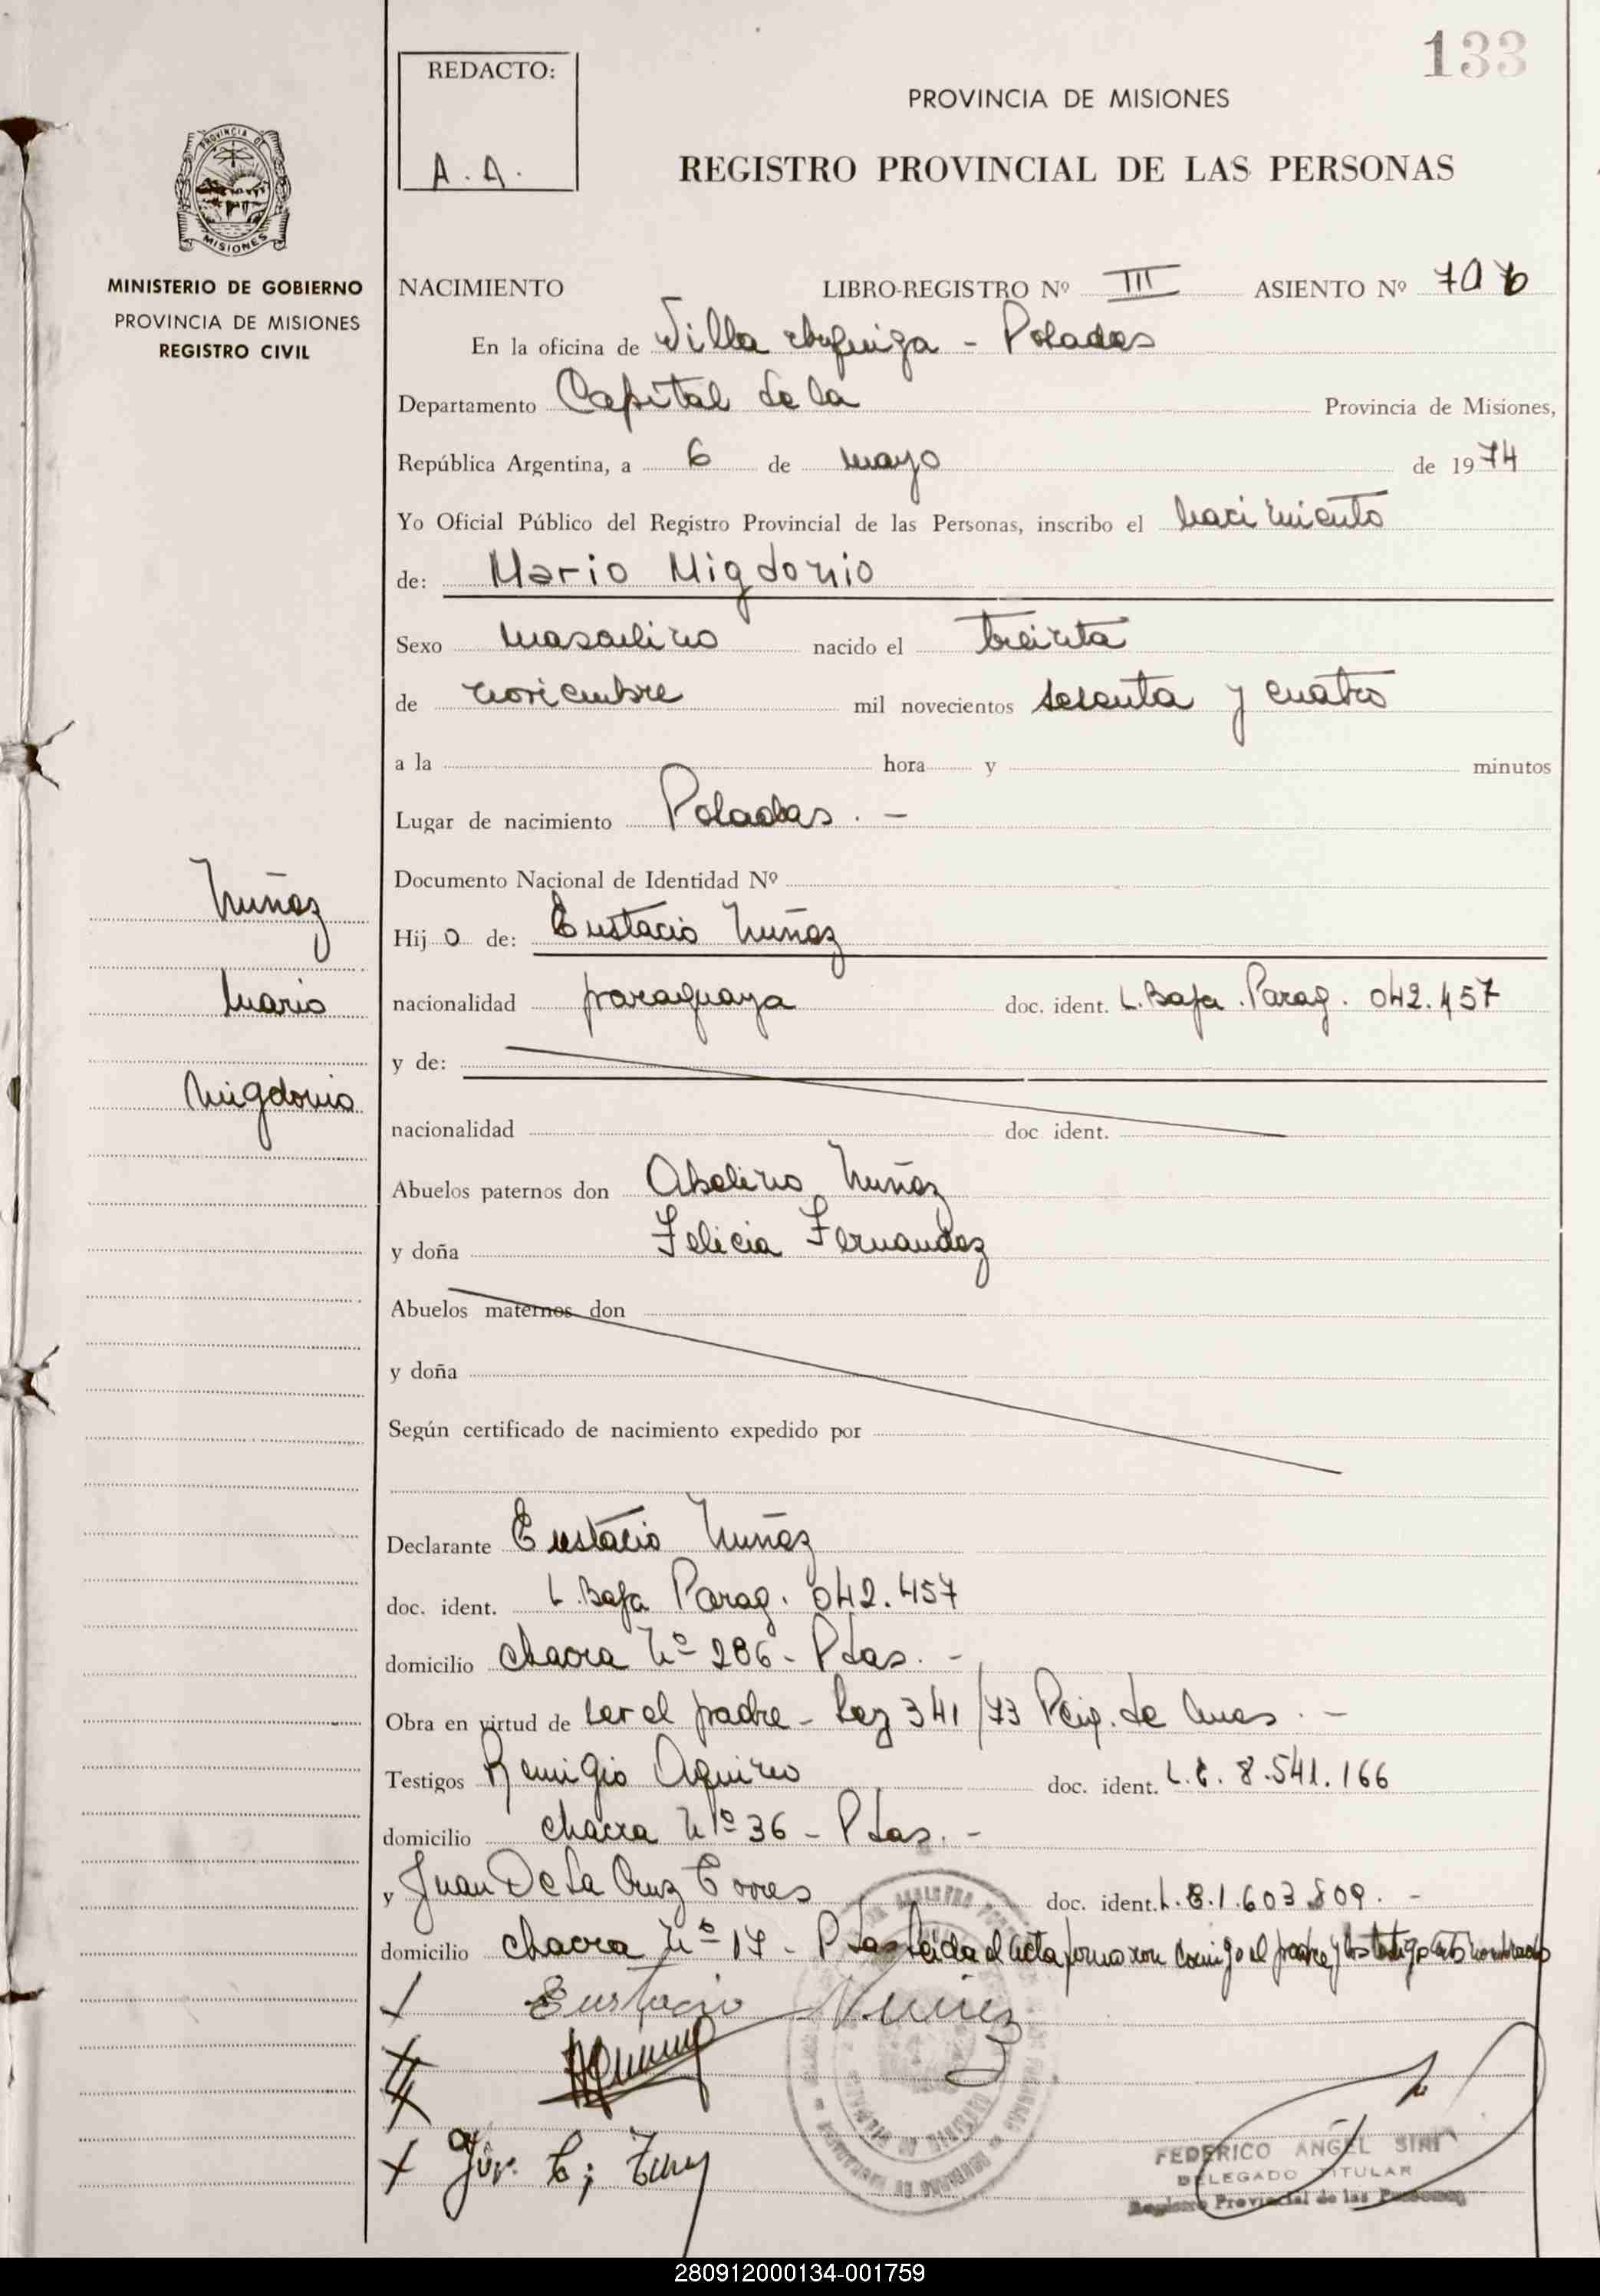 133
REDACTO:
A. A.
PROVINCIA DE MISIONES
REGISTRO PROVINCIAL DE LAS PERSONAS
PROVINCIA DE
MISIONES
MINISTERIO DE GOBIERNO
PROVINCIA DE MISIONES
REGISTRO CIVIL
NACIMIENTO LIBRO-REGISTRO Nº III ASIENTO Nº
En la oficina de Villa - Posadas
Departamento Capital de la Provincia de Misiones,
República Argentina, a 6 de mayo de 1974
Yo Oficial Público del Registro Provincial de las Personas, inscribo el nacimiento
de: Mario Migdonio
Sexo masculino nacido el treinta
de noviembre mil novecientos sesenta y cuatro
a la hora y minutos
Lugar de nacimiento Posadas. -
Documento Nacional de Identidad Nº
Nuñez
Hijo de: Eustacio Nuñez
Mario
nacionalidad paraguaya doc. ident. L. Baja. Parag. 042.457
y de:
Migdonio
nacionalidad doc ident.
Abuelos paternos don Abelino Nuñez
y doña Felicia Fernandez
Abuelos maternos don
y doña
Según certificado de nacimiento expedido por
Declarante Eustacio Nuñez
doc. ident. L. Baja Parag. 042.457
domicilio chacra Nº 286 - Pdas. -
Obra en virtud de ser el padre - Ley 341/73 de . -
Testigos Remigio Aquino doc. ident. L.E. 8.541.166
domicilio chacra Nº 36 - Pdas. -
y Juan De La Cruz Torres doc. ident. L.E. 1.603.809. -
domicilio chacra Nº 17 - Pdas Leida el acta firman con el padre y los testigos nombrados
Eustacio Nuñez
FEDERICO ANGEL SIRI
DELEGADO TITULAR
Registro Provincial de las Personas
280912000134-001759